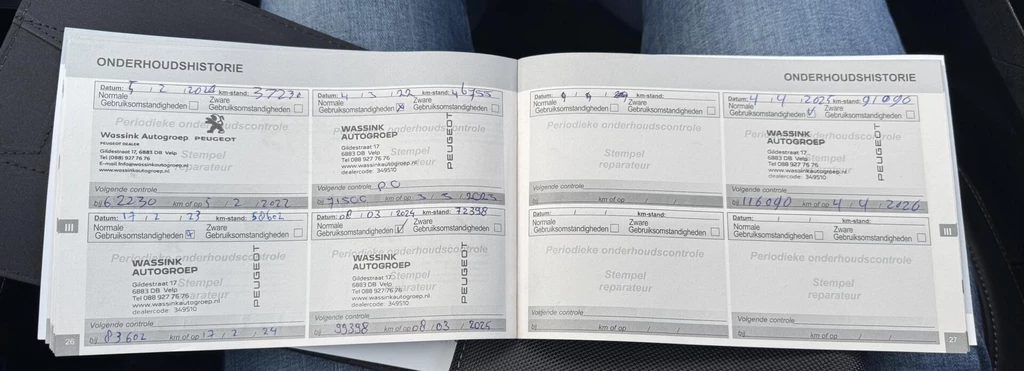 ONDERHOUDSHISTORIE
Datum: 5 / 2 / 2021 km-stand: 37230
Normale Gebruiksomstandigheden
Zware Gebruiksomstandigheden
Periodieke onderhoudscontrole
Wassink Autogroep PEUGEOT
PEUGEOT DEALER
Gildestraat 17, 6883 DB Velp
Tel (088) 927 76 76
E-mail info@wassinkautogroep.nl
www.wassinkautogroep.nl
Stempel reparateur
Volgende controle
bij 62230 km of op 5 / 2 / 2022
Datum: 4 / 3 / 22 km-stand: 46755
Normale Gebruiksomstandigheden
Zware Gebruiksomstandigheden
Periodieke onderhoudscontrole
WASSINK AUTOGROEP
PEUGEOT
Gildestraat 17
6883 DB Velp
Tel 088 927 76 76
www.wassinkautogroep.nl
dealercode: 349510
Stempel reparateur
Volgende controle
bij km of op
Datum: 17 / 2 / 23 km-stand: 58602
Normale Gebruiksomstandigheden
Zware Gebruiksomstandigheden
Periodieke onderhoudscontrole
WASSINK AUTOGROEP
PEUGEOT
Gildestraat 17
6883 DB Velp
Tel 088 927 76 76
www.wassinkautogroep.nl
dealercode: 349510
Stempel reparateur
Volgende controle
bij 83602 km of op 17 / 2 / 24
Datum: 08 / 03 / 2024 km-stand: 72398
Normale Gebruiksomstandigheden
Zware Gebruiksomstandigheden
Periodieke onderhoudscontrole
WASSINK AUTOGROEP
PEUGEOT
Gildestraat 17
6883 DB Velp
Tel 088 927 76 76
www.wassinkautogroep.nl
dealercode: 349510
Stempel reparateur
Volgende controle
bij 99398 km of op 08 / 03 / 2025
III
26
ONDERHOUDSHISTORIE
Datum: km-stand:
Normale Gebruiksomstandigheden
Zware Gebruiksomstandigheden
Periodieke onderhoudscontrole
Stempel reparateur
Volgende controle
bij km of op / /
Datum: 4 / 4 / 2025 km-stand: 91090
Normale Gebruiksomstandigheden
Zware Gebruiksomstandigheden
Periodieke onderhoudscontrole
WASSINK AUTOGROEP
PEUGEOT
Gildestraat 17
6883 DB Velp
Tel 088 927 76 76
www.wassinkautogroep.nl
dealercode: 349510
Stempel reparateur
Volgende controle
bij 116090 km of op 4 / 4 / 2026
Datum: / / km-stand:
Normale Gebruiksomstandigheden
Zware Gebruiksomstandigheden
Periodieke onderhoudscontrole
Stempel reparateur
Volgende controle
bij km of op / /
Datum: / / km-stand:
Normale Gebruiksomstandigheden
Zware Gebruiksomstandigheden
Periodieke onderhoudscontrole
Stempel reparateur
Volgende controle
bij km of op / /
III
27